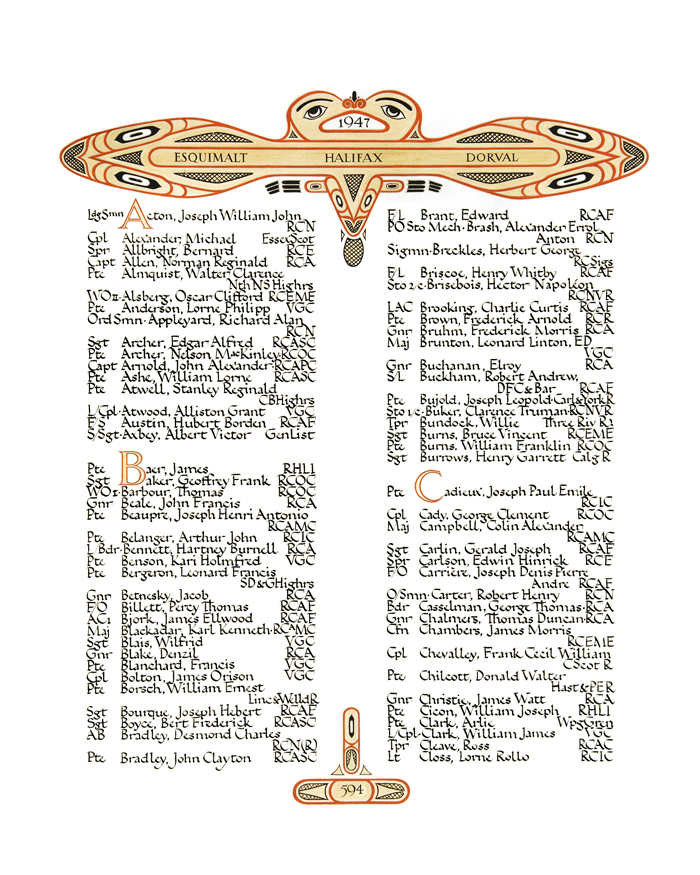 1947
ESQUIMALT HALIFAX DORVAL
LdgSmn Acton, Joseph William John
RCN
Cpl Alexander, Michael EssexScot
Spr Allbright, Bernard RCE
Capt Allen, Norman Reginald RCA
Pte Almquist, Walter Clarence
Nth NS Highrs
WO II Alsberg, Oscar Clifford RCEME
Pte Anderson, Lorne Philipp VGC
Ord Smn Appleyard, Richard Alan
RCN
Sgt Archer, Edgar Alfred RCASC
Pte Archer, Nelson MacKinley RCOC
Capt Arnold, John Alexander RCAPC
Pte Ashe, William Lorne RCASC
Pte Atwell, Stanley Reginald
CBHighrs
L/Cpl Atwood, Alliston Grant VGC
F/S Austin, Hubert Borden RCAF
S/Sgt Axbey, Albert Victor GenList
Pte Baer, James RHLI
Sgt Baker, Geoffrey Frank RCOC
WO I Barbour, Thomas RCOC
Gnr Beale, John Francis RCA
Pte Beaupre, Joseph Henri Antonio
RCAMC
Pte Belanger, Arthur John RCIC
L/Bdr Bennett, Hartney Burnell RCA
Pte Benson, Kari Holmfred VGC
Pte Bergeron, Leonard Francis
SD&GHighrs
Gnr Betnesky, Jacob RCA
F/O Billett, Percy Thomas RCAF
AC1 Bjork, James Ellwood RCAF
Maj Blackadar, Karl Kenneth RCAMC
Sgt Blais, Wilfrid VGC
Gnr Blake, Denzil RCA
Pte Blanchard, Francis VGC
Cpl Bolton, James Orison VGC
Pte Borsch, William Ernest
Linc&WelldR
Sgt Bourque, Joseph Hebert RCAF
Sgt Boyce, Bert Frederick RCASC
AB Bradley, Desmond Charles
RCN(R)
Pte Bradley, John Clayton RCASC
F/L Brant, Edward RCAF
PO Sto Mech Brash, Alexander Errol
Anton RCN
Sigmn Breckles, Herbert George
RCSigs
F/L Briscoe, Henry Whitby RCAF
Sto 2/c Brisebois, Hector Napoléon
RCNVR
LAC Brooking, Charlie Curtis RCAF
Pte Brown, Frederick Arnold RCR
Gnr Bruhm, Frederick Morris RCA
Maj Brunton, Leonard Linton, ED
VGC
Gnr Buchanan, Elroy RCA
S/L Buckham, Robert Andrew,
DFC & Bar RCAF
Pte Bujold, Joseph Leopold Carl&YorkR
Sto 1/c Buker, Clarence Truman RCNVR
Tpr Bundock, Willie Three Riv R
Sgt Burns, Bruce Vincent RCEME
Pte Burns, William Franklin RCOC
Sgt Burrows, Henry Garrett Calg R
Pte Cadieux, Joseph Paul Emile
RCIC
Cpl Cady, George Clement RCOC
Maj Campbell, Colin Alexander
RCAMC
Sgt Carlin, Gerald Joseph RCAF
Spr Carlson, Edwin Hinrick RCE
F/O Carrière, Joseph Denis Pierre
Andre RCAF
O/Smn Carter, Robert Henry RCN
Bdr Casselman, George Thomas RCA
Gnr Chalmers, Thomas Duncan RCA
Cfn Chambers, James Morris
RCEME
Cpl Chevalley, Frank Cecil William
C Scot R
Pte Chilcott, Donald Walter
Hast&PER
Gnr Christie, James Watt RCA
Pte Cicon, William Joseph RHLI
Pte Clark, Arlie WpgGren
L/Cpl Clark, William James VGC
Tpr Cleave, Ross RCAC
Lt Closs, Lorne Rollo RCIC
594